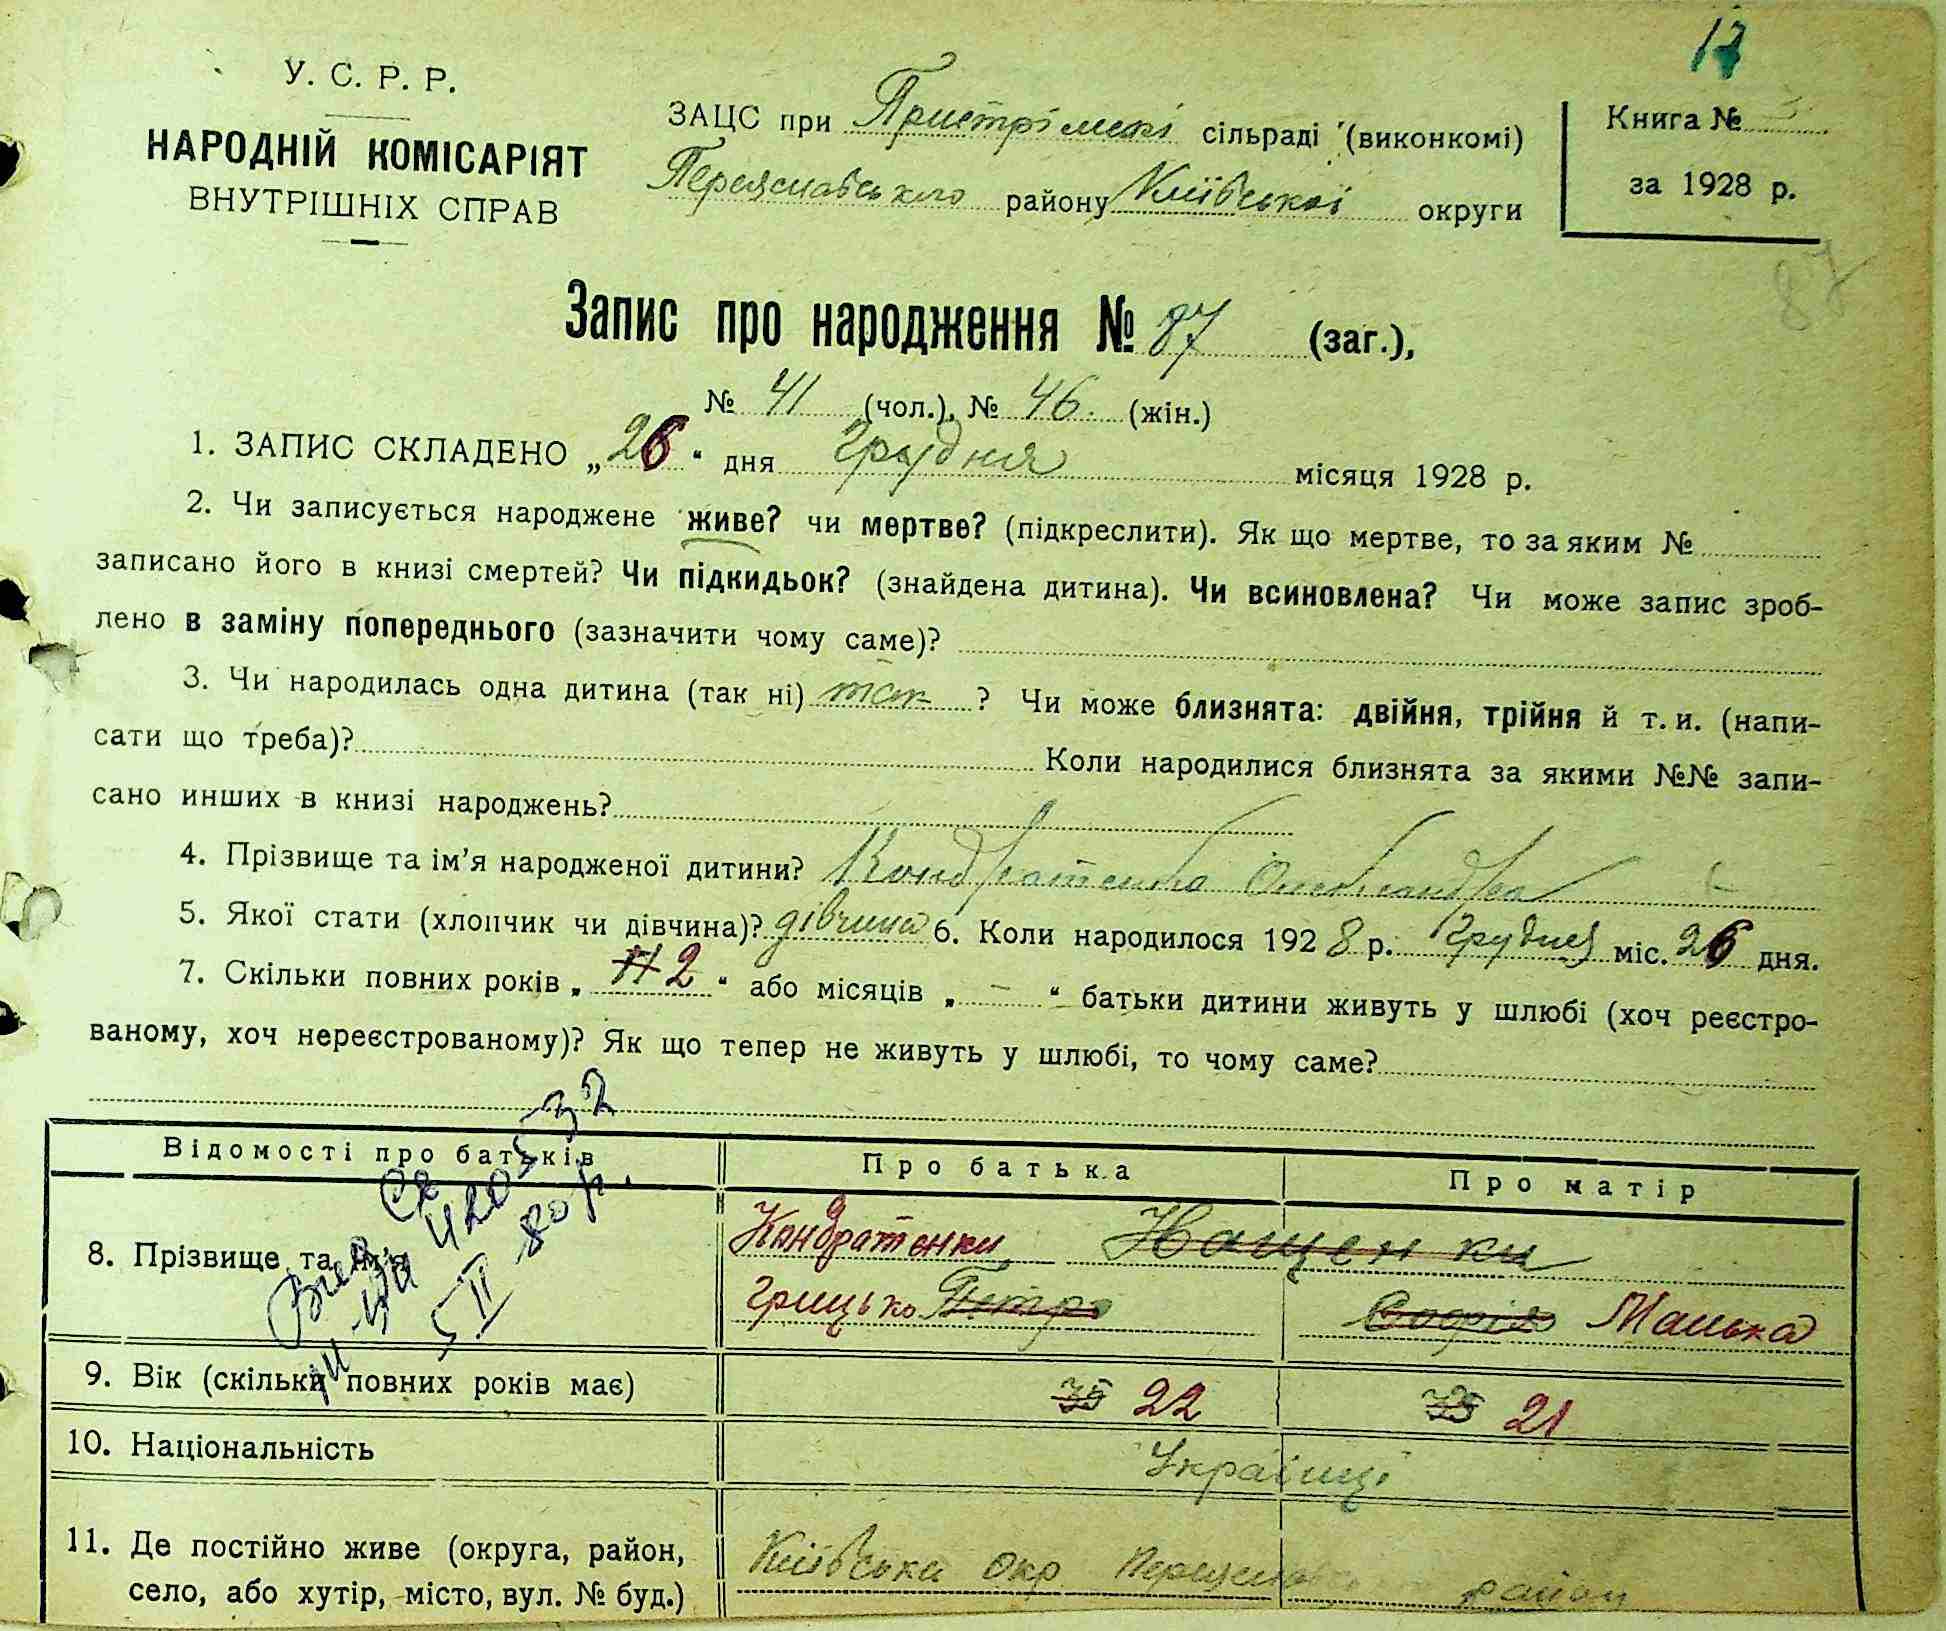 17
У. С. Р. Р.
НАРОДНІЙ КОМІСАРІЯТ
ВНУТРІШНІХ СПРАВ
ЗАЦС при Пристромській сільраді (виконкомі)
Переяславського району Київської округи
Книга №
за 1928 р.
87
Запис про народження № 87 (заг.),
№ 41 (чол.), № 46. (жін.)
1. ЗАПИС СКЛАДЕНО „26“ дня Грудня місяця 1928 р.
2. Чи записується народжене живе? чи мертве? (підкреслити). Як що мертве, то за яким №
записано його в книзі смертей? Чи підкидьок? (знайдена дитина). Чи всиновлена? Чи може запис зроб-
лено в заміну попереднього (зазначити чому саме)?
3. Чи народилась одна дитина (так ні) так ? Чи може близнята: двійня, трійня й т. и. (напи-
сати що треба)? Коли народилися близнята за якими №№ запи-
сано инших в книзі народжень?
4. Прізвище та ім'я народженої дитини? Кондратенко Олександра
5. Якої стати (хлопчик чи дівчина)? дівчина 6. Коли народилося 1928 р. Грудня міс. 26 дня.
7. Скільки повних років „ 11 2 “ або місяців „ – “ батьки дитини живуть у шлюбі (хоч реєстро-
ваному, хоч нереєстрованому)? Як що тепер не живуть у шлюбі, то чому саме?
Відомості про батьків Про батька Про матір
8. Прізвище та ім'я Кондратенки Нащенки
Грицько Петро Софія Манька
5 II 80 р.
9. Вік (скільки повних років має) 35 22 35 21
10. Національність Українці
11. Де постійно живе (округа, район, Київська окр Переяслав район
село, або хутір, місто, вул. № буд.)